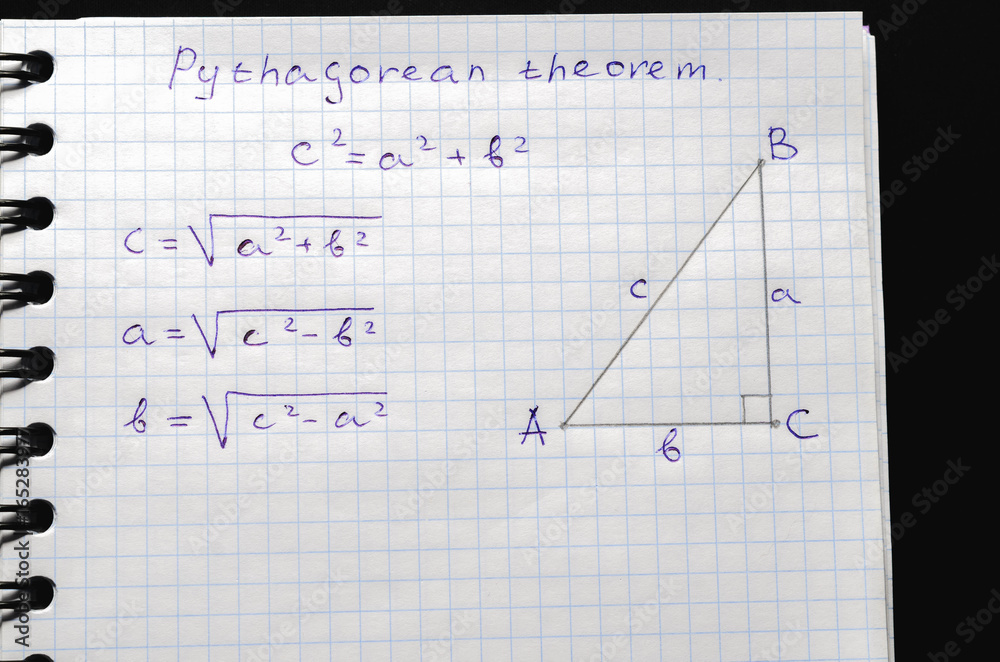 Pythagorean theorem.
c² = a² + b²
c = √(a² + b²)
a = √(c² − b²)
b = √(c² − a²)
B
c
a
A
b
C
Adobe Stock | #165283977